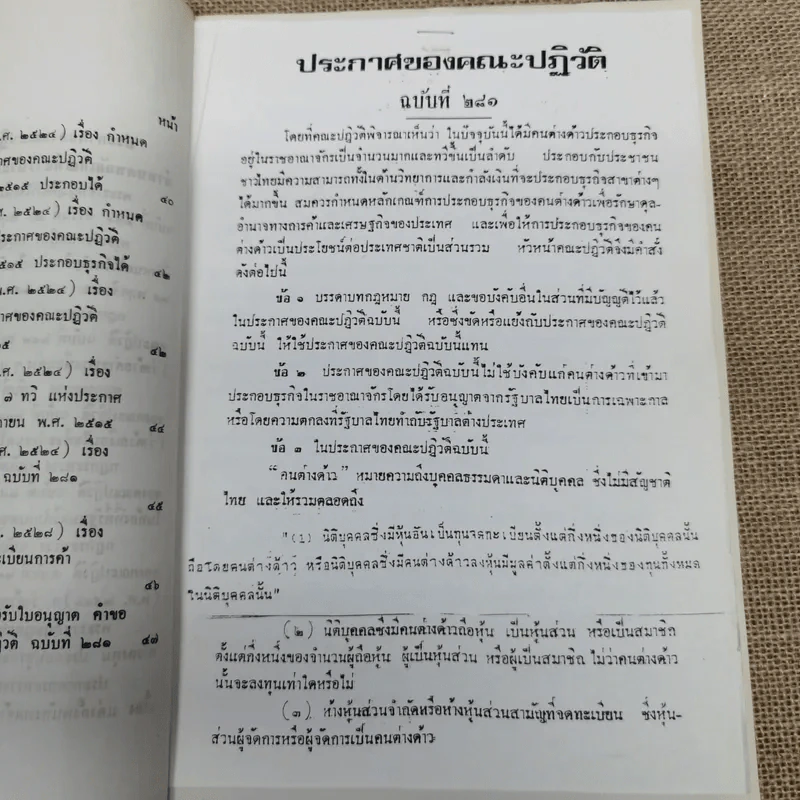 หน้า
พ.ศ. ๒๕๒๔) เรื่อง กำหนด
กาศของคณะปฏิวัติ
๒๕๑๕ ประกอบได้
๔๐
ศ. ๒๕๒๔) เรื่อง กำหนด
ประกาศของคณะปฏิวัติ
๕๑๕ ประกอบธุรกิจได้
๔๒
พ.ศ. ๒๕๒๔) เรื่อง
กาศของคณะปฏิวัติ
๕
๔๒
ศ. ๒๕๒๔) เรื่อง
๗ ทวิ แห่งประกาศ
ายน พ.ศ. ๒๕๑๕
๔๔
ศ. ๒๕๒๔) เรื่อง
ฉบับที่ ๒๘๑
๔๕
. ๒๕๒๘) เรื่อง
ะเบียนการค้า
๔๖
งรับใบอนุญาต คำขอ
ฏิวัติ ฉบับที่ ๒๘๑
๔๗
ประกาศของคณะปฏิวัติ
ฉบับที่ ๒๘๑
โดยที่คณะปฏิวัติพิจารณาเห็นว่า ในปัจจุบันนี้ได้มีคนต่างด้าวประกอบธุรกิจ
อยู่ในราชอาณาจักรเป็นจำนวนมากและทวีขึ้นเป็นลำดับ ประกอบกับประชาชน
ชาวไทยมีความสามารถทั้งในด้านวิทยาการและกำลังเงินที่จะประกอบธุรกิจสาขาต่างๆ
ได้มากขึ้น สมควรกำหนดหลักเกณฑ์การประกอบธุรกิจของคนต่างด้าวเพื่อรักษาดุล-
อำนาจทางการค้าและเศรษฐกิจของประเทศ และเพื่อให้การประกอบธุรกิจของคน
ต่างด้าวเป็นประโยชน์ต่อประเทศชาติเป็นส่วนรวม หัวหน้าคณะปฏิวัติจึงมีคำสั่ง
ดังต่อไปนี้
ข้อ ๑ บรรดาบทกฎหมาย กฎ และข้อบังคับอื่นในส่วนที่มีบัญญัติไว้แล้ว
ในประกาศของคณะปฏิวัติฉบับนี้ หรือซึ่งขัดหรือแย้งกับประกาศของคณะปฏิวัติ
ฉบับนี้ ให้ใช้ประกาศของคณะปฏิวัติฉบับนี้แทน
ข้อ ๒ ประกาศของคณะปฏิวัติฉบับนี้ไม่ใช้บังคับแก่คนต่างด้าวที่เข้ามา
ประกอบธุรกิจในราชอาณาจักรโดยได้รับอนุญาตจากรัฐบาลไทยเป็นการเฉพาะกาล
หรือโดยความตกลงที่รัฐบาลไทยทำกับรัฐบาลต่างประเทศ
ข้อ ๓ ในประกาศของคณะปฏิวัติฉบับนี้
“คนต่างด้าว” หมายความถึงบุคคลธรรมดาและนิติบุคคล ซึ่งไม่มีสัญชาติ
ไทย และให้รวมตลอดถึง
"(1) นิติบุคคลซึ่งมีหุ้นอันเป็นทุนจดทะเบียนตั้งแต่กึ่งหนึ่งของนิติบุคคลนั้น
ถือโดยคนต่างด้าว หรือนิติบุคคลซึ่งมีคนต่างด้าวลงหุ้นมีมูลค่าตั้งแต่กึ่งหนึ่งของทุนทั้งหมด
ในนิติบุคคลนั้น"
(๒) นิติบุคคลซึ่งมีคนต่างด้าวถือหุ้น เป็นหุ้นส่วน หรือเป็นสมาชิก
ตั้งแต่กึ่งหนึ่งของจำนวนผู้ถือหุ้น ผู้เป็นหุ้นส่วน หรือผู้เป็นสมาชิก ไม่ว่าคนต่างด้าว
นั้นจะลงทุนเท่าใดหรือไม่
(๓) ห้างหุ้นส่วนจำกัดหรือห้างหุ้นส่วนสามัญที่จดทะเบียน ซึ่งหุ้น-
ส่วนผู้จัดการหรือผู้จัดการเป็นคนต่างด้าว